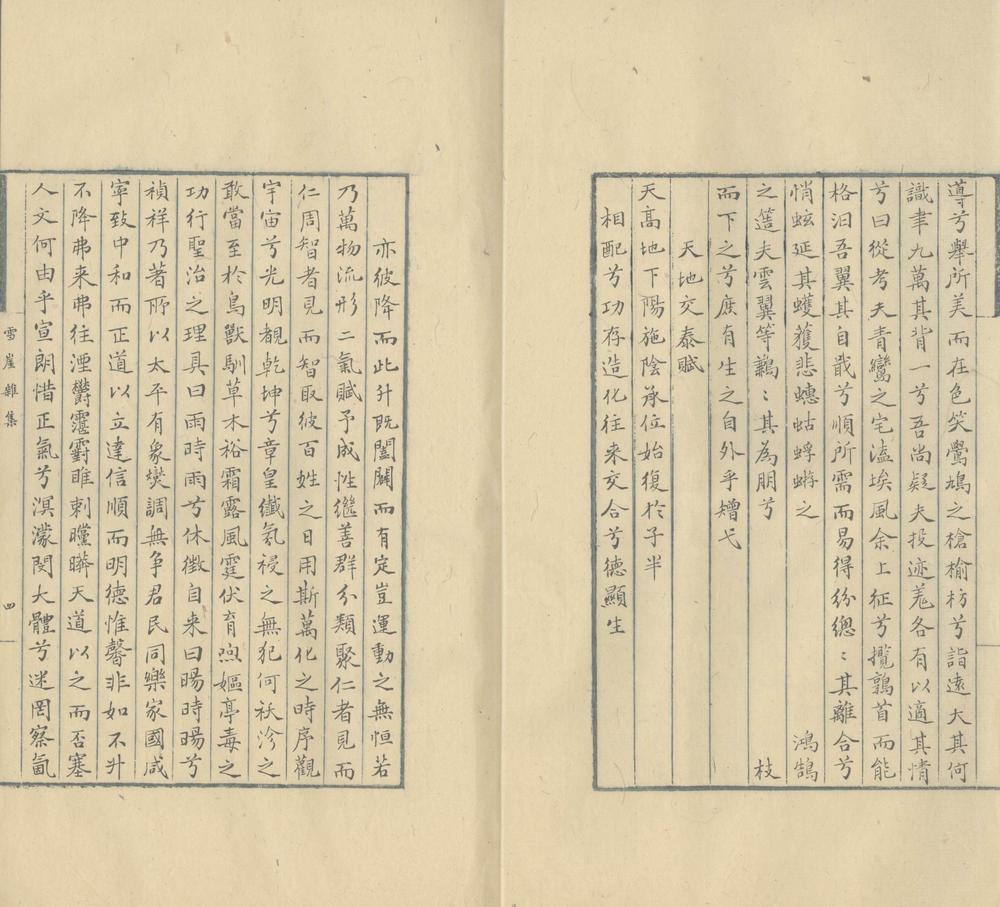 導兮舉所美而在色笑鶯鳩之槍榆枋兮詣遠大其何
識聿九萬其背一兮吾尚疑夫投迹羌各有以適其情
兮曰從考夫青鸞之宅溘埃風余上征兮攬鶉首而能
格汩吾翼其自戢兮順所需而易得紛總〻其離合兮
悄蚿延其蠖蠖悲蟪蛄蜉蝣之　　　　　鴻鵠
之籩夫雲翼等鷦〻其為朋兮　　　　　枝
而下之兮庶有生之自外乎矰弋
天地交泰賦
天高地下陽施陰承位始復於子半
相配兮功存造化往來交合兮德顯生
亦彼降而此升既闔闢而有定豈運動之無恒若
乃萬物流形二氣賦予成性繼善群分類聚仁者見而
仁周智者見而智取彼百姓之日用斯萬化之時序觀
宇宙兮光明覩乾坤兮章皇纖氛祲之無犯何祅沴之
敢當至於鳥獸馴草木裕霜露風霆伏育煦嫗亭毒之
功行聖治之理真曰雨時雨兮休徵自来曰暘時暘兮
禎祥乃著所以太平有象爕調無争君民同樂家國咸
寧致中和而正道以立達信順而明德惟馨非如不升
不降弗来弗往湮欝霮䨴睢刺曭瞵天道以之而否塞
人文何由乎宣朗惜正氣兮溟濛閔大體兮迷罔察氤
雪崖雜集
四